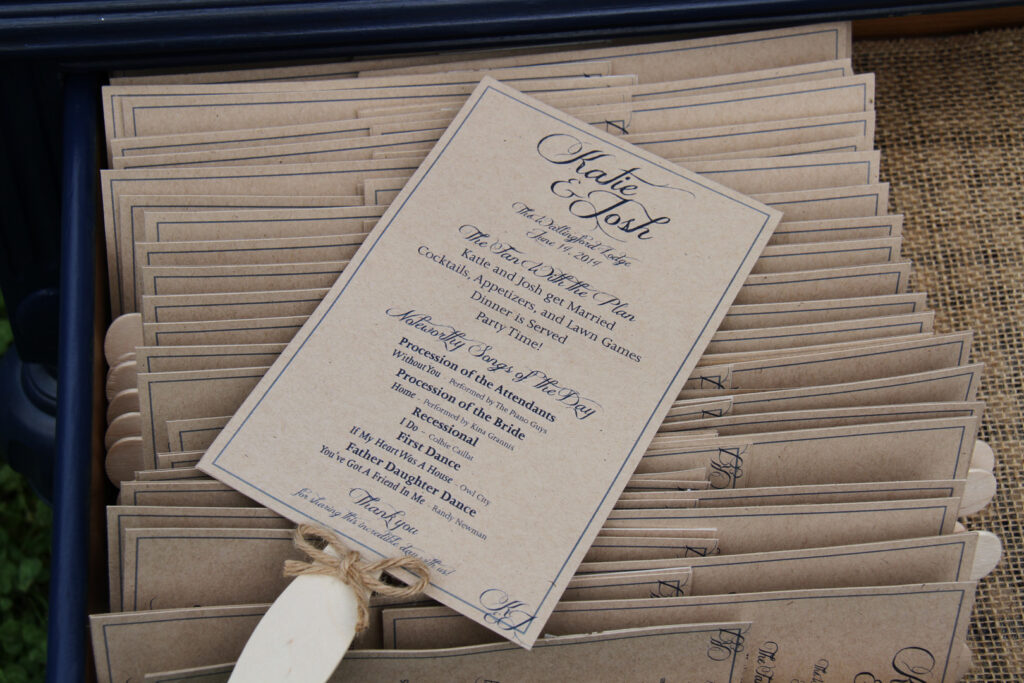 Katie
& Josh
The Wallingford Lodge
June 14, 2014
The Fan With the Plan
Katie and Josh get Married
Cocktails, Appetizers, and Lawn Games
Dinner is Served
Party Time!
Noteworthy Songs of the Day
Procession of the Attendants
Without You - Performed by The Piano Guys
Procession of the Bride
Home - Performed by Kina Grannis
Recessional
I Do - Colbie Caillat
First Dance
If My Heart Was A House - Owl City
Father Daughter Dance
You've Got A Friend In Me - Randy Newman
Thank you
for sharing this incredible day with us!
K&J